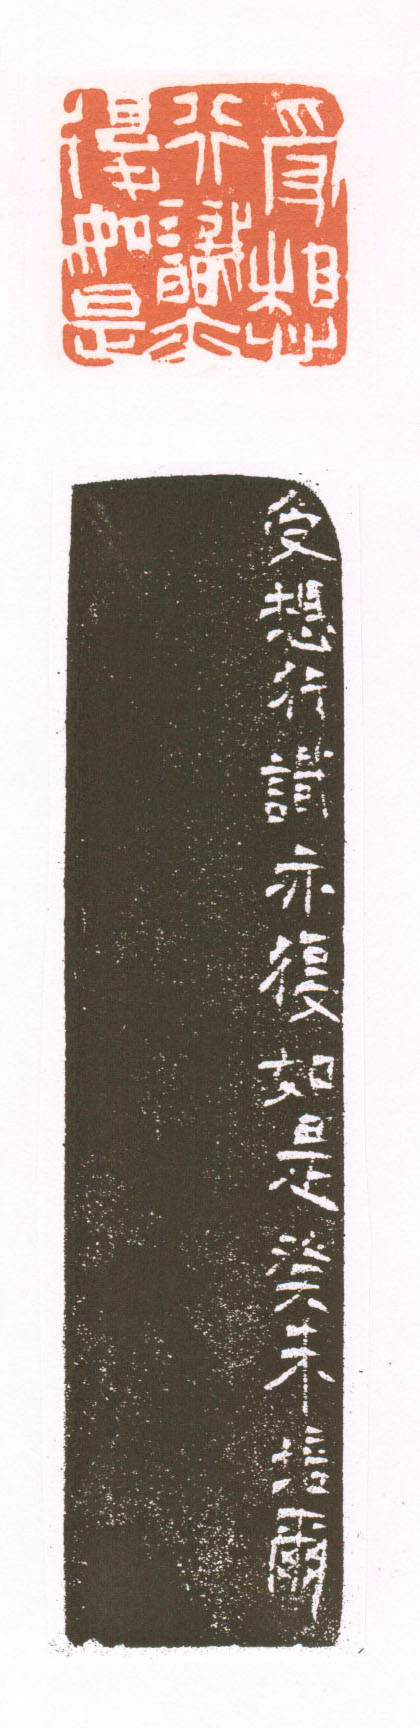 受想
行識亦
復如是
受想行識亦復如是癸未爾